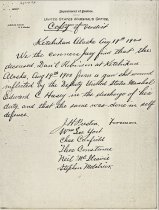 Department of Justice
UNITED STATES MARSHAL'S OFFICE
Copy of Verdict
Ketchikan Alaska Aug 19th 1900
We the coroners jury find that the
deceased Dan'l Robinson at Ketchikan
Alaska Aug 19th 1900 from a gun shot wound
inflicted by the Deputy United States Marshal
Edward C. Hasey in the discharge of his
duty and that the same was done in self
defence.
J. H. Foreman
Wm
Chas
Theo
Neil
Stephen